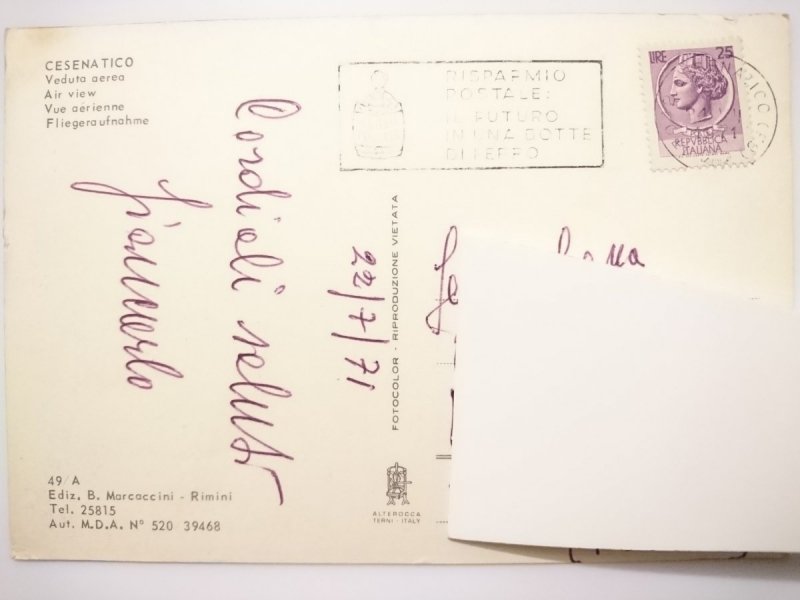 CESENATICO
Veduta aerea
Air view
Vue aerienne
Fliegeraufnahme
RISPARMIO
POSTALE:
IL FUTURO
IN UNA BOTTE
DI FERRO
LIRE 25
REPVBBLICA
ITALIANA
Cordiali saluti
Giancarlo
22/7/71
FOTOCOLOR - RIPRODUZIONE VIETATA
49/A
Ediz. B. Marcaccini - Rimini
Tel. 25815
Aut. M.D.A. N° 520 39468
ALTEROCCA
TERNI - ITALY